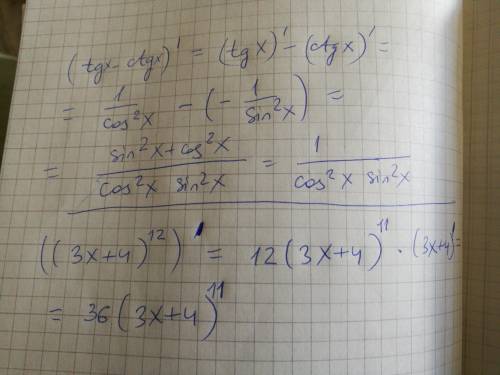 (tgx-ctgx)' = (tgx)' - (ctgx)' =
= 1/cos²x - (- 1/sin²x) =
= (sin²x+cos²x)/(cos²x sin²x) = 1/(cos²x sin²x)
((3x+4)¹²)' = 12(3x+4)¹¹ · (3x+4)' =
= 36(3x+4)¹¹